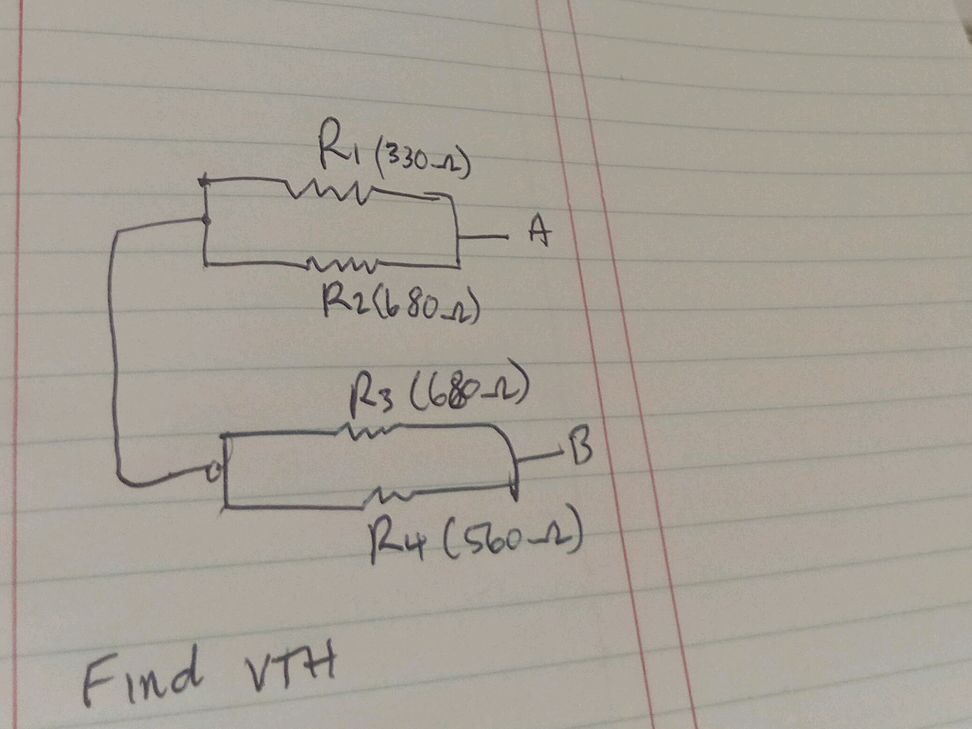 R1 (330Ω)
A
R2 (680Ω)
R3 (680Ω)
B
R4 (560Ω)
Find VTH